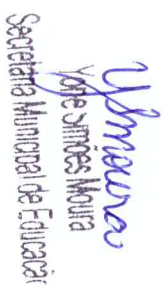 YSmoura
Yone Simões Moura
Secretaria Municipal de Educação